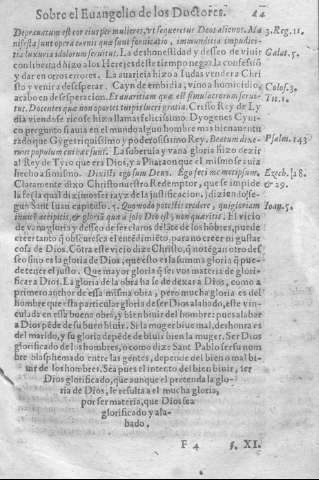 Sobre el Euangelio de los Doctores. 44
Deprauatum est cor eius per mulieres, vt sequeretur Deos alienos. Ma 3. Reg. 11.
nifesta sunt opera carnis quæ sunt fornicatio, immunditia impudici-
tia luxuria idolorum seruitus. La deshonestidad y desseo de viuir Galat. 5.
con libertad hizo a los Herejes deste tiempo negar la confessiõ
y dar en otros errores. La auaricia hizo a Iudas vender a Chri
sto y venir a desesperar. Cayn de embidia, vino a homicidio, Colos. 3.
acabo en desesperacion. Et auaritiam quæ est simulacrorum serui- Tit. 1.
tus. Docentes quæ non oportet turpis lucri gratia. Creso Rey de Ly
dia viendose rico se hizo llamar felicissimo. Dyogenes Cyni-
co pregunto si auia en el mundo algun hombre mas bienauentu
rado que Gyges riquissimo y poderosissimo Rey. Beatum dixe- Psalm. 143
runt populum cui hæc sunt. La soberuia y vana gloria hizo dezir
al Rey de Tyro que era Dios, y a Pharaon que el mismo se auia
hecho a si mismo. Dixisti ego sum Deus. Ego feci me metipsum. Ezech. 28.
Claramente dixo Christo nuestro Redemptor, que se impide & 29.
la fe la qual ha cimos ser rayz de la justificacion, diziendo se-
gun Sant Iuan capitolo. 5. Quomodo potestis credere, qui gloriam Ioan. 5.
inuicem accipitis, & gloriã quæ a solo Deo est, non quæritis. El vicio
de vana gloria y desseo de ser claros delãte de los hõbres, puede
creer tanto q̃ obscuresca el entẽdimiẽto, para no creer ni gustar
cosa de Dios. Cõtra este vicio dize Christo, q̃ no tẽgan otro des
seo sino es la gloria de Dios, que esto es la summa gloria q̃ pue-
de tener el justo. Que mayor gloria q̃ ser vos materia de glori-
ficar a Dios. La gloria de la obra ha se de dexar a Dios, como a
primero auctor de essa misma obra, pero mucha gloria es del
hombre que essa particular gloria de ser Dios alabado, este vin-
culada en essa buena obra, y bien biuir del hombre: pues alabar
a Dios pẽde de su buen biuir. Si la muger biue mal, deshonra es
del marido, y su gloria depẽde de biuir bien la muger. Ser Dios
glorificado de los hombres, o como dize Sant Pablo ser su nom
bre blasphemado entre las gentes, depende del bien o mal bi-
uir de los hombres. Sea pues el intento del bien biuir, ser
Dios glorificado, que aunque el pretenda la glo-
ria de Dios, le resulta a el mucha gloria,
por ser materia, que Dios sea
glorificado y ala-
bado,
F 4 §. XI.